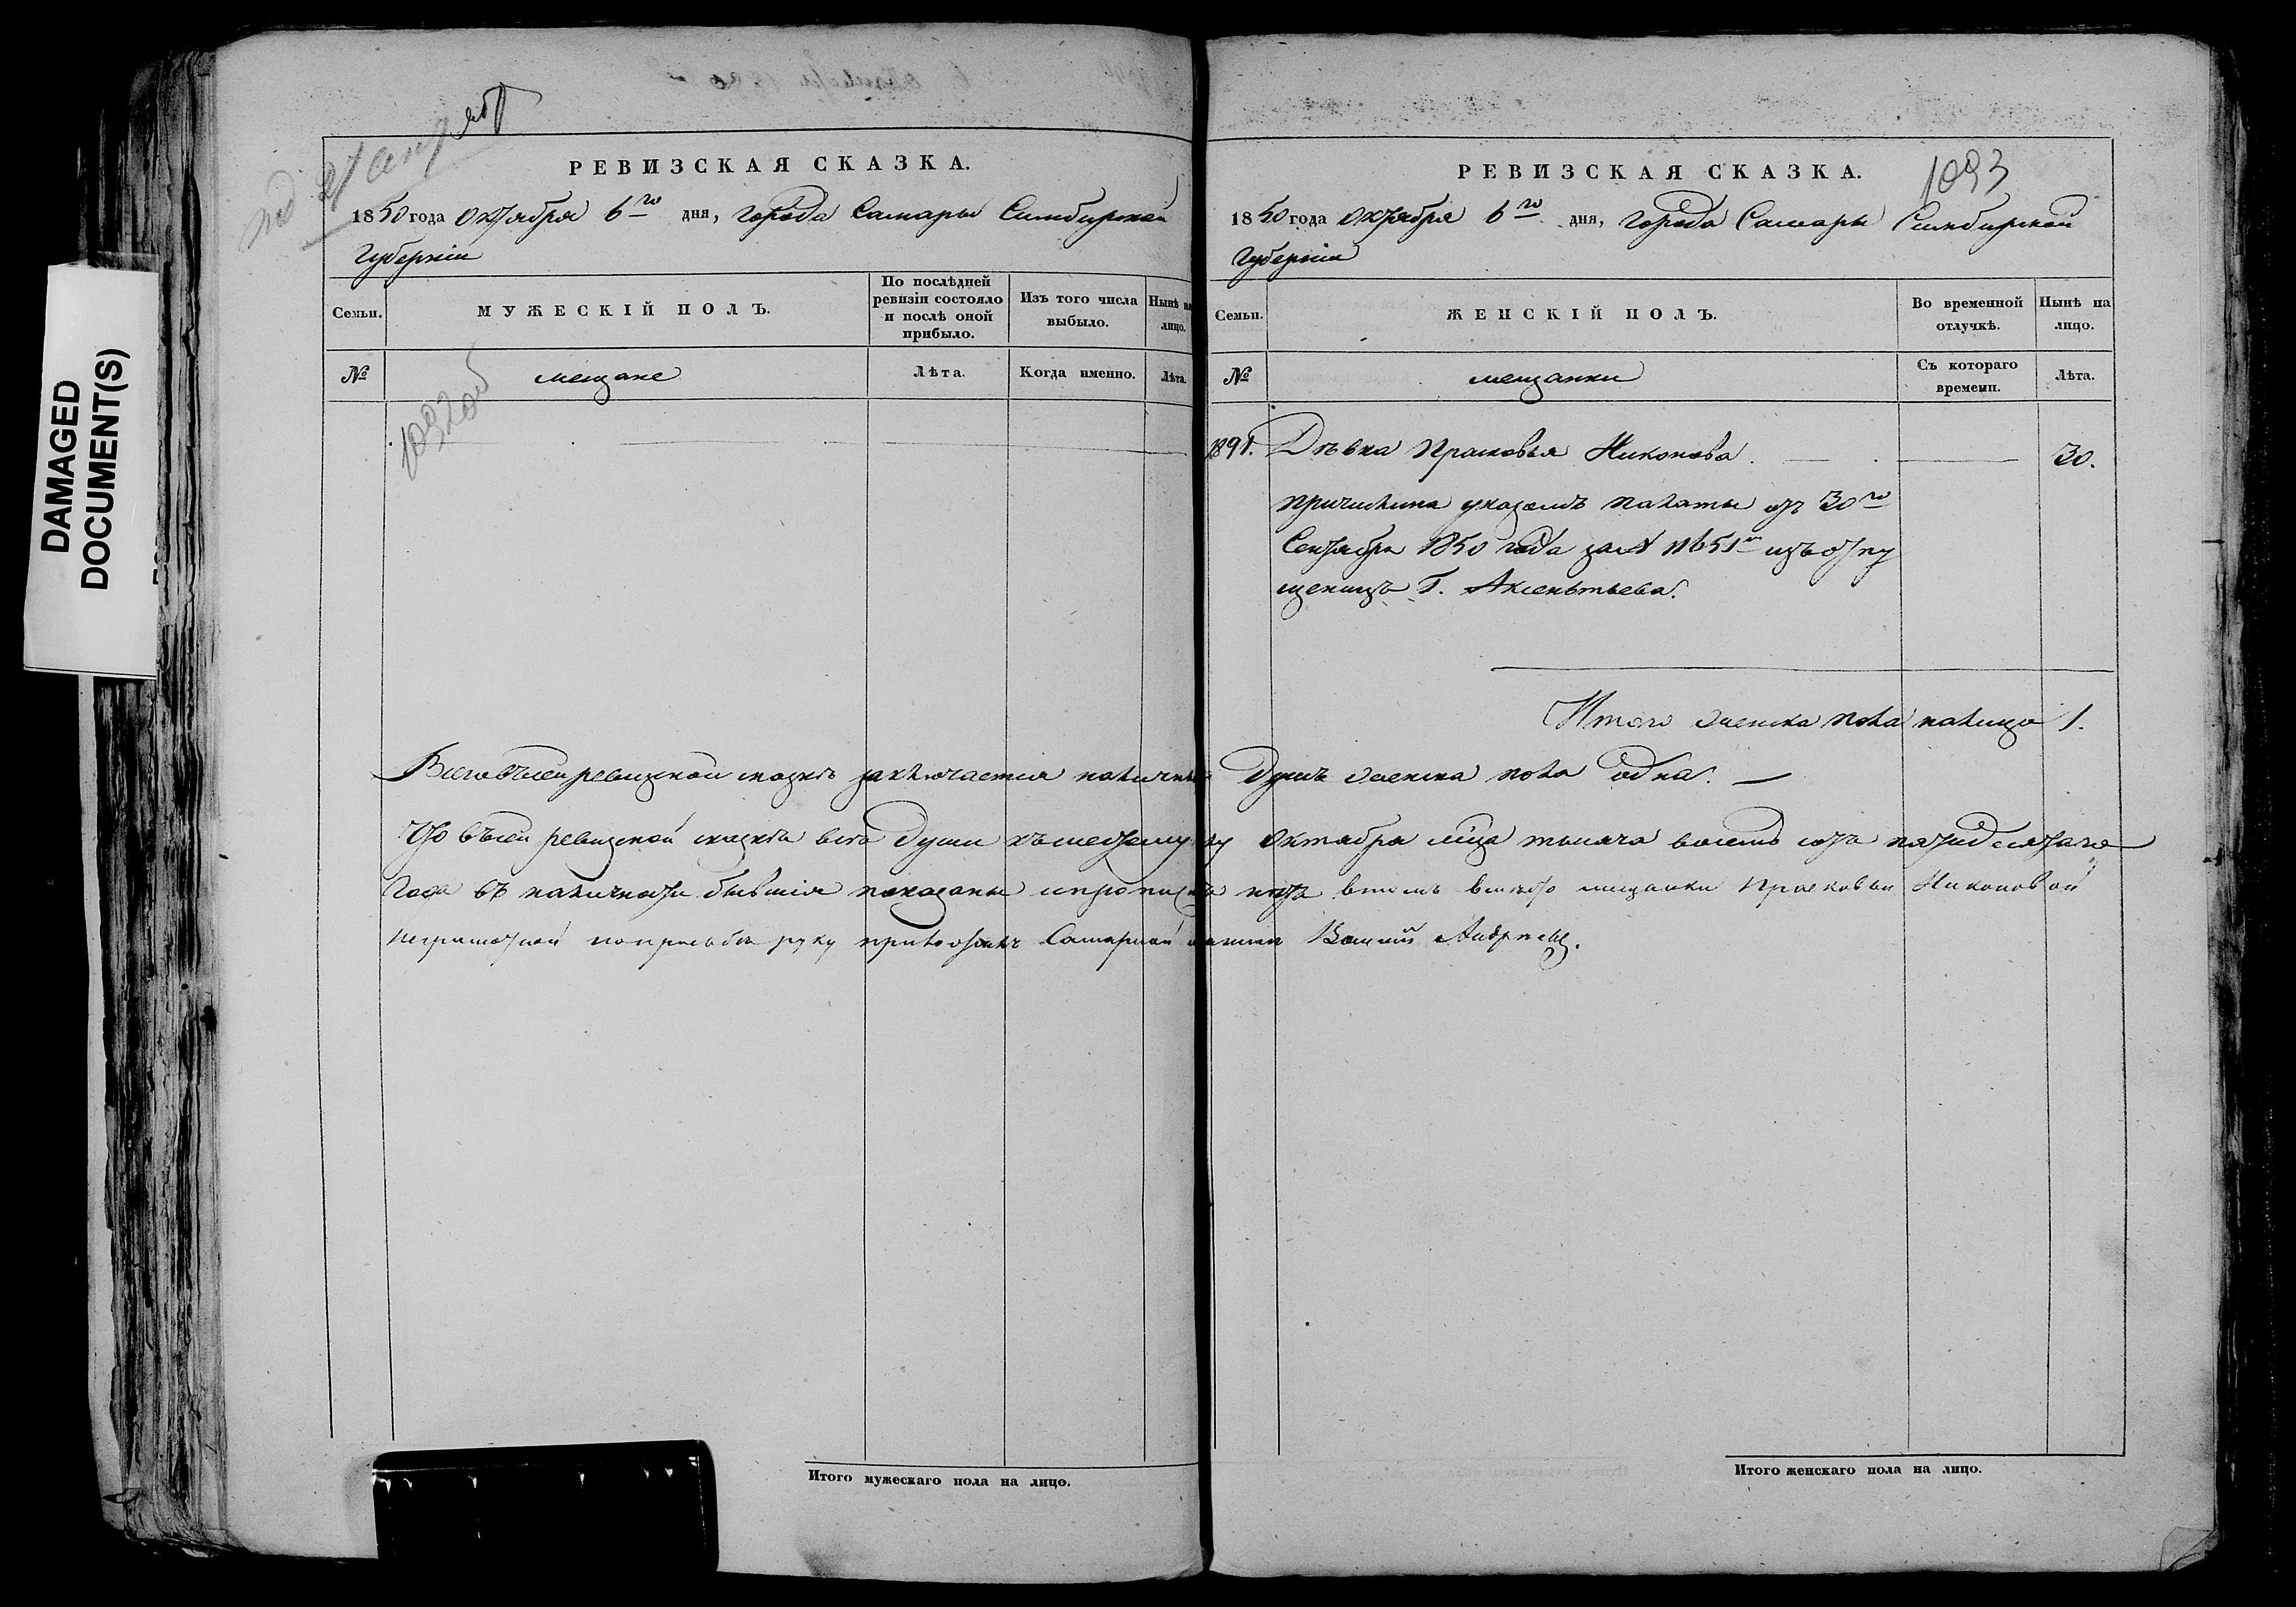 DAMAGED
DOCUMENT(S)
РЕВИЗСКАЯ СКАЗКА.
1850 года Октября 6го дня, города Самары Симбирской
Губерніи
Семьи.
МУЖЕСКІЙ ПОЛЪ.
По послѣдней
ревизіи состояло
и послѣ оной
прибыло.
Изъ того числа
выбыло.
Нынѣ на
лицо.
№
мещане
Лѣта.
Когда именно.
Лѣта.
1092об
РЕВИЗСКАЯ СКАЗКА.
1093
1850 года Октября 6го дня, города Самары Симбирской
Губерніи
Семьи.
ЖЕНСКІЙ ПОЛЪ.
Во временной
отлучкѣ.
Нынѣ на
лицо.
№
мещанки
Съ котораго
времени.
Лѣта.
1891. Дѣвка Прасковья Никонова. 30.
причислина указомъ палаты отъ 30го
Сентября 1850 года за № 11651м изъ отпу
щеницъ Г. Аксентьева.
Итого женска пола налицо 1.
Всего въ сей ревизской сказкѣ заключается наличныхъ душъ женска пола одна.
Что въ сей ревизской сказкѣ все души къ шестому Октября мѣца тысяча восемь сотъ пятидесятаго
года въ наличности бывшія показаны и прописныхъ нетъ въ томъ вместо мещанки Прасковьи Никоновой
неграмотной по прозьбе руку приложилъ Самарской Василій Андреевъ.
Итого мужескаго пола на лицо.
Итого женскаго пола на лицо.